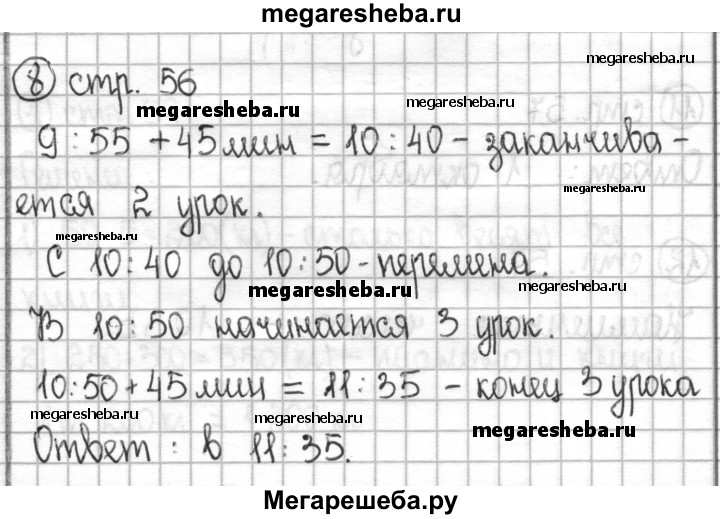 megaresheba.ru
megaresheba.ru
8 стр. 56
megaresheba.ru
megaresheba.ru
9:55 + 45 мин = 10:40 - заканчива-
megaresheba.ru
ется 2 урок.
megaresheba.ru
С 10:40 до 10:50 - перемена.
megaresheba.ru
megaresheba.ru
В 10:50 начинается 3 урок.
10:50 + 45 мин = 11:35 - конец 3 урока
megaresheba.ru
megaresheba.ru
megaresheba.ru
Ответ: в 11:35.
Мегарешеба.ру